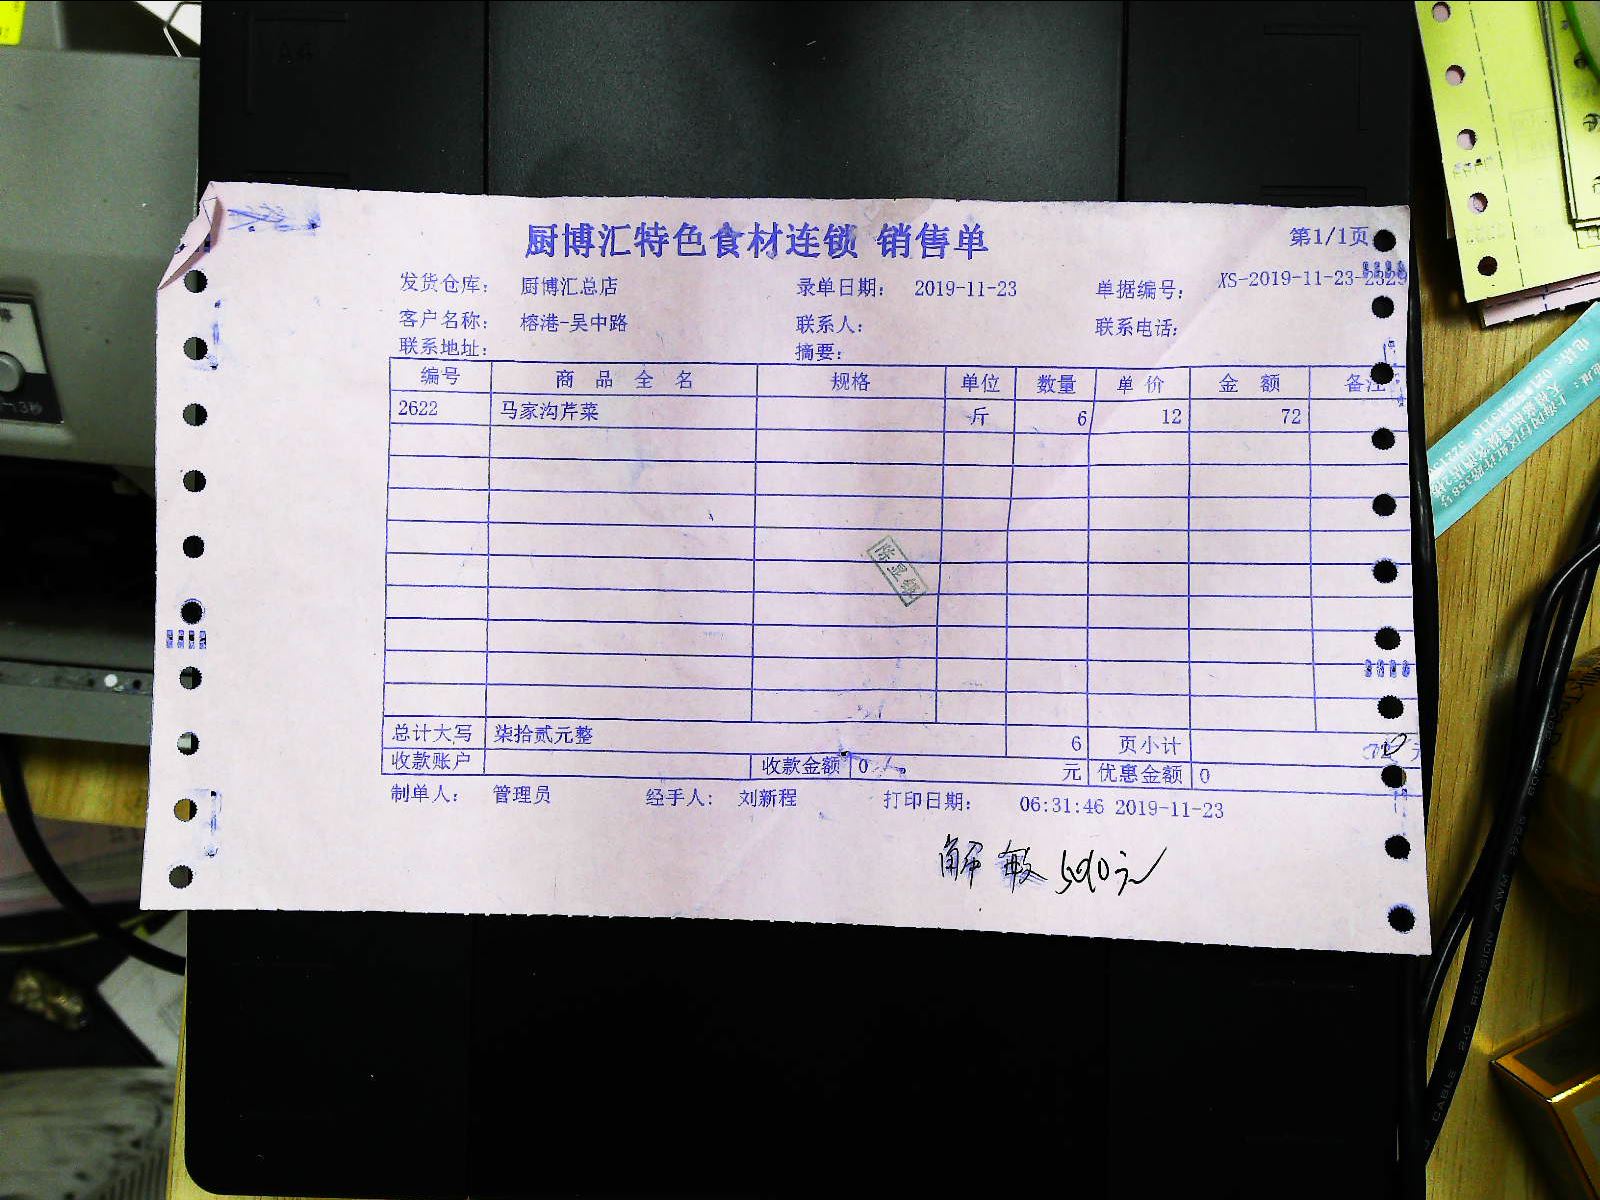 厨博汇特色食材连锁 销售单
第1/1页
发货仓库： 厨博汇总店 录单日期： 2019-11-23 单据编号： XS-2019-11-23-2329
客户名称： 榕港-吴中路 联系人： 联系电话：
联系地址： 摘要：
编号 商品全名 规格 单位 数量 单价 金额 备注
2622 马家沟芹菜 斤 6 12 72
总计大写 柒拾贰元整 6 页小计
收款账户 收款金额 0 元 优惠金额 0
制单人： 管理员 经手人： 刘新程 打印日期： 06:31:46 2019-11-23